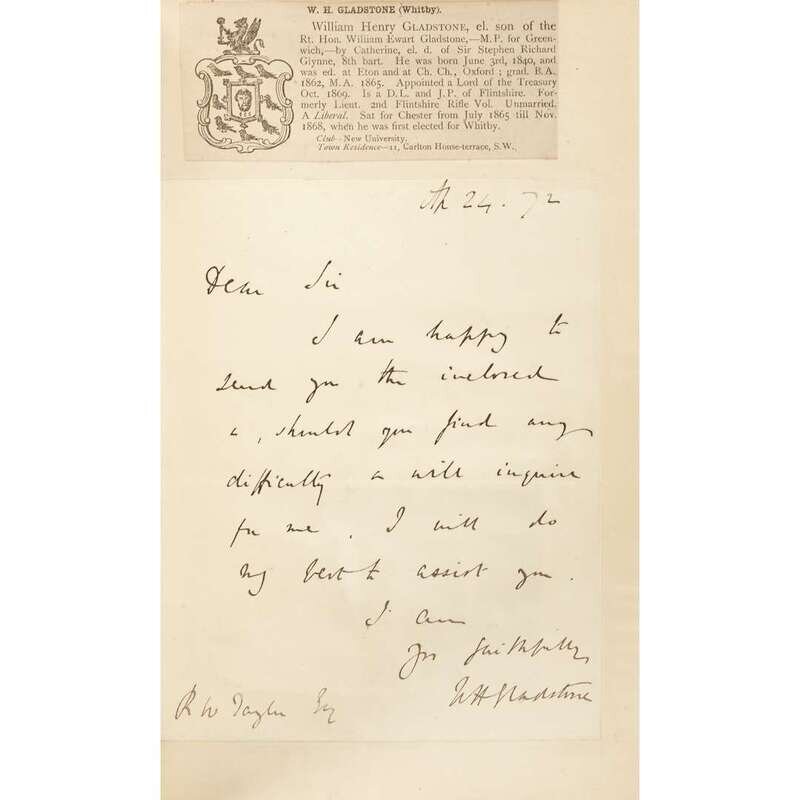 W. H. GLADSTONE (Whitby).
William Henry GLADSTONE, el. son of the
Rt. Hon. William Ewart Gladstone,—M.P. for Green-
wich,—by Catherine, el. d. of Sir Stephen Richard
Glynne, 8th bart. He was born June 3rd, 1840, and
was ed. at Eton and at Ch. Ch., Oxford; grad. B.A.
1862, M.A. 1865. Appointed a Lord of the Treasury
Oct. 1869. Is a D.L. and J.P. of Flintshire. For-
merly Lieut. 2nd Flintshire Rifle Vol. Unmarried.
A Liberal. Sat for Chester from July 1865 till Nov.
1868, when he was first elected for Whitby.
Club—New University.
Town Residence—11, Carlton House-terrace, S.W.
Ap 24. 72
Dear Sir
I am happy to
send you the inclosed
&, should you find any
difficulty & will inquire
for me, I will do
my best to assist you.
I am
Yrs faithfully
WHGladstone
R W Taylor Esq